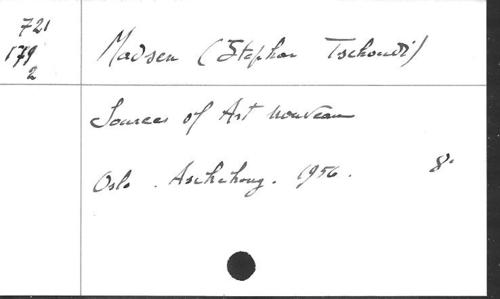 721
179
2
Madsen (Stephan Tschoudi)
Sources of Art nouveau
Oslo. Aschehoug. 1956. 8°